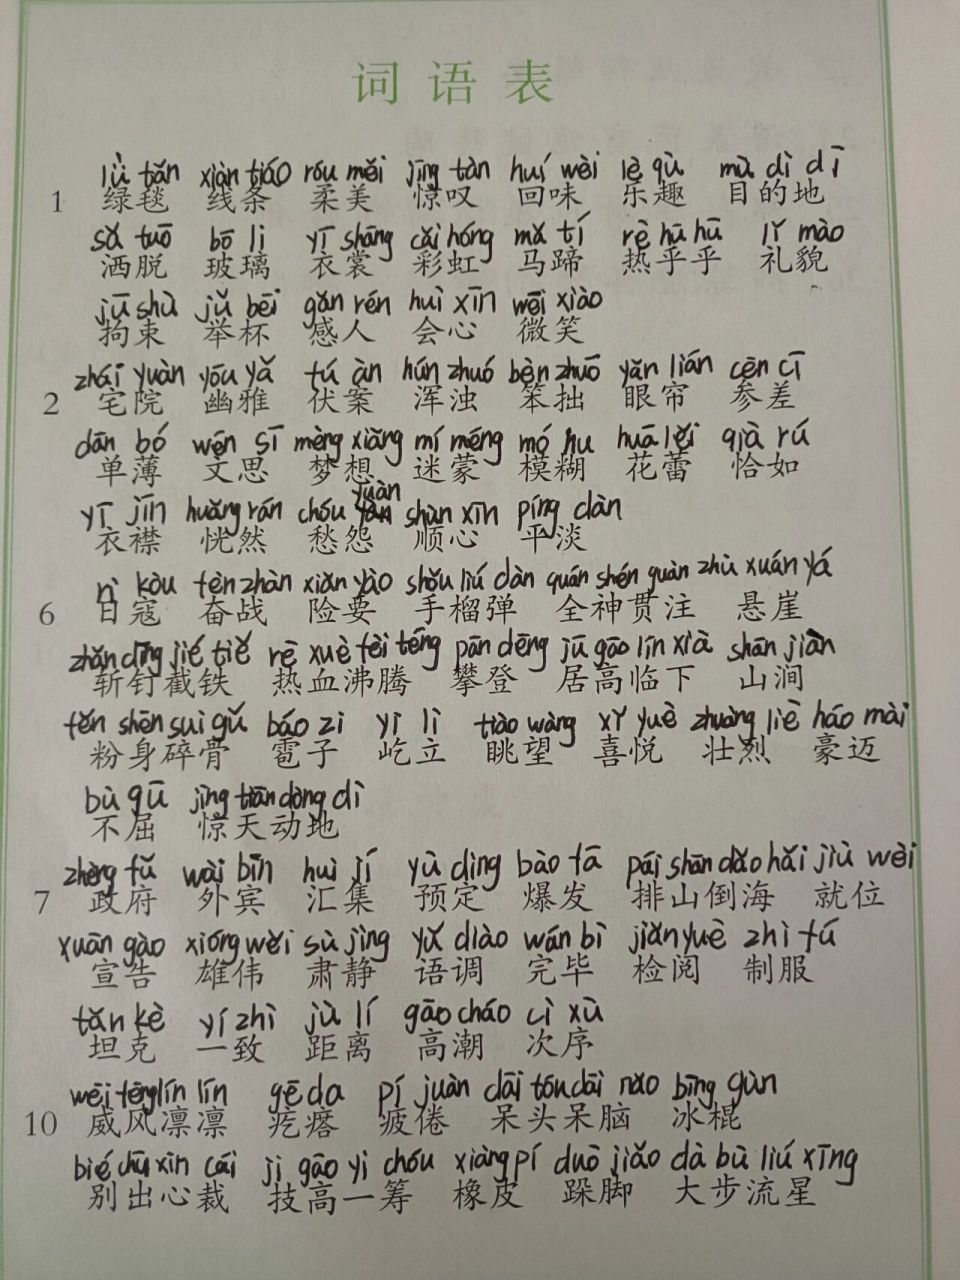 词语表
lǜ tǎn xiàn tiáo róu měi jīng tàn huí wèi lè qù mù dì dī
1 绿毯 线条 柔美 惊叹 回味 乐趣 目的地
sǎ tuō bō li yī shāng cǎi hóng mǎ tí rè hū hū lǐ mào
洒脱 玻璃 衣裳 彩虹 马蹄 热乎乎 礼貌
jū shù jǔ bēi gǎn rén huì xīn wēi xiào
拘束 举杯 感人 会心 微笑
zhái yuàn yōu yǎ fú àn hún zhuó bèn zhuō yǎn lián cēn cī
2 宅院 幽雅 伏案 浑浊 笨拙 眼帘 参差
dān bó wén sī mèng xiǎng mí méng mó hu huā lěi qià rú
单薄 文思 梦想 迷蒙 模糊 花蕾 恰如
yī jīn huǎng rán chóu yuàn shùn xīn píng dàn
衣襟 恍然 愁怨 顺心 平淡
rì kòu fèn zhàn xiǎn yào shǒu liú dàn quán shén guàn zhù xuán yá
6 日寇 奋战 险要 手榴弹 全神贯注 悬崖
zhǎn dīng jié tiě rē xuè fèi téng pān dēng jū gāo lín xià shān jiàn
斩钉截铁 热血沸腾 攀登 居高临下 山涧
fěn shēn suì gǔ báo zi yì lì tiào wàng xǐ yuè zhuàng liè háo mài
粉身碎骨 雹子 屹立 眺望 喜悦 壮烈 豪迈
bù qū jīng tiān dòng dì
不屈 惊天动地
zhèng fǔ wài bīn huì jí yù dìng bào fā pái shān dǎo hǎi jiù wèi
7 政府 外宾 汇集 预定 爆发 排山倒海 就位
xuān gào xióng wěi sù jìng yǔ diào wán bì jiǎn yuè zhì fú
宣告 雄伟 肃静 语调 完毕 检阅 制服
tǎn kè yí zhì jù lí gāo cháo cì xù
坦克 一致 距离 高潮 次序
wēi fēng lín lín gē da pí juàn dāi tóu dāi nǎo bīng gùn
10 威风凛凛 疙瘩 疲倦 呆头呆脑 冰棍
bié chū xīn cái jì gāo yì chóu xiàng pí duò jiǎo dà bù liú xīng
别出心裁 技高一筹 橡皮 跺脚 大步流星